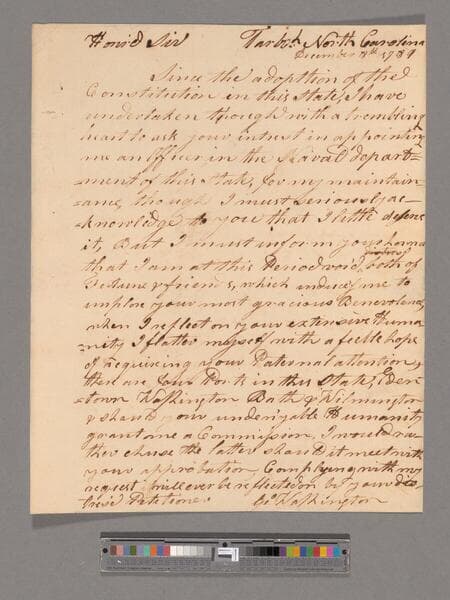 Honrd Sir Tarbh. North Carolina
December 8th 1789
Since the adoption of the
Constitution in this State, I have
undertaken though with a trembling
heart to ask your intrest in appointing
me an Officer in the Naval depart=
=ment of this State, for my maintain=
=ance, though I must seriously ac=
=knowledge to you that I little deserve
it, But I must inform your
that I am at this Period void both of
Fortune & friends, which induces me to
implore your most gracious Benevolence,
when I reflect on your extensive Huma=
=nity I flatter myself with a feeble hope
of acquiring your Paternal attention,
there are four Ports in this State, Eden=
=town Washington Bath & Wilmington
& should your undeniable Humanity
grant me a Commission, I would ra=
ther chuse the latter should it meet with
your approbation, Complying with my
request will ever be reflected on by your dis=
tress'd Petitioner
Go Washington